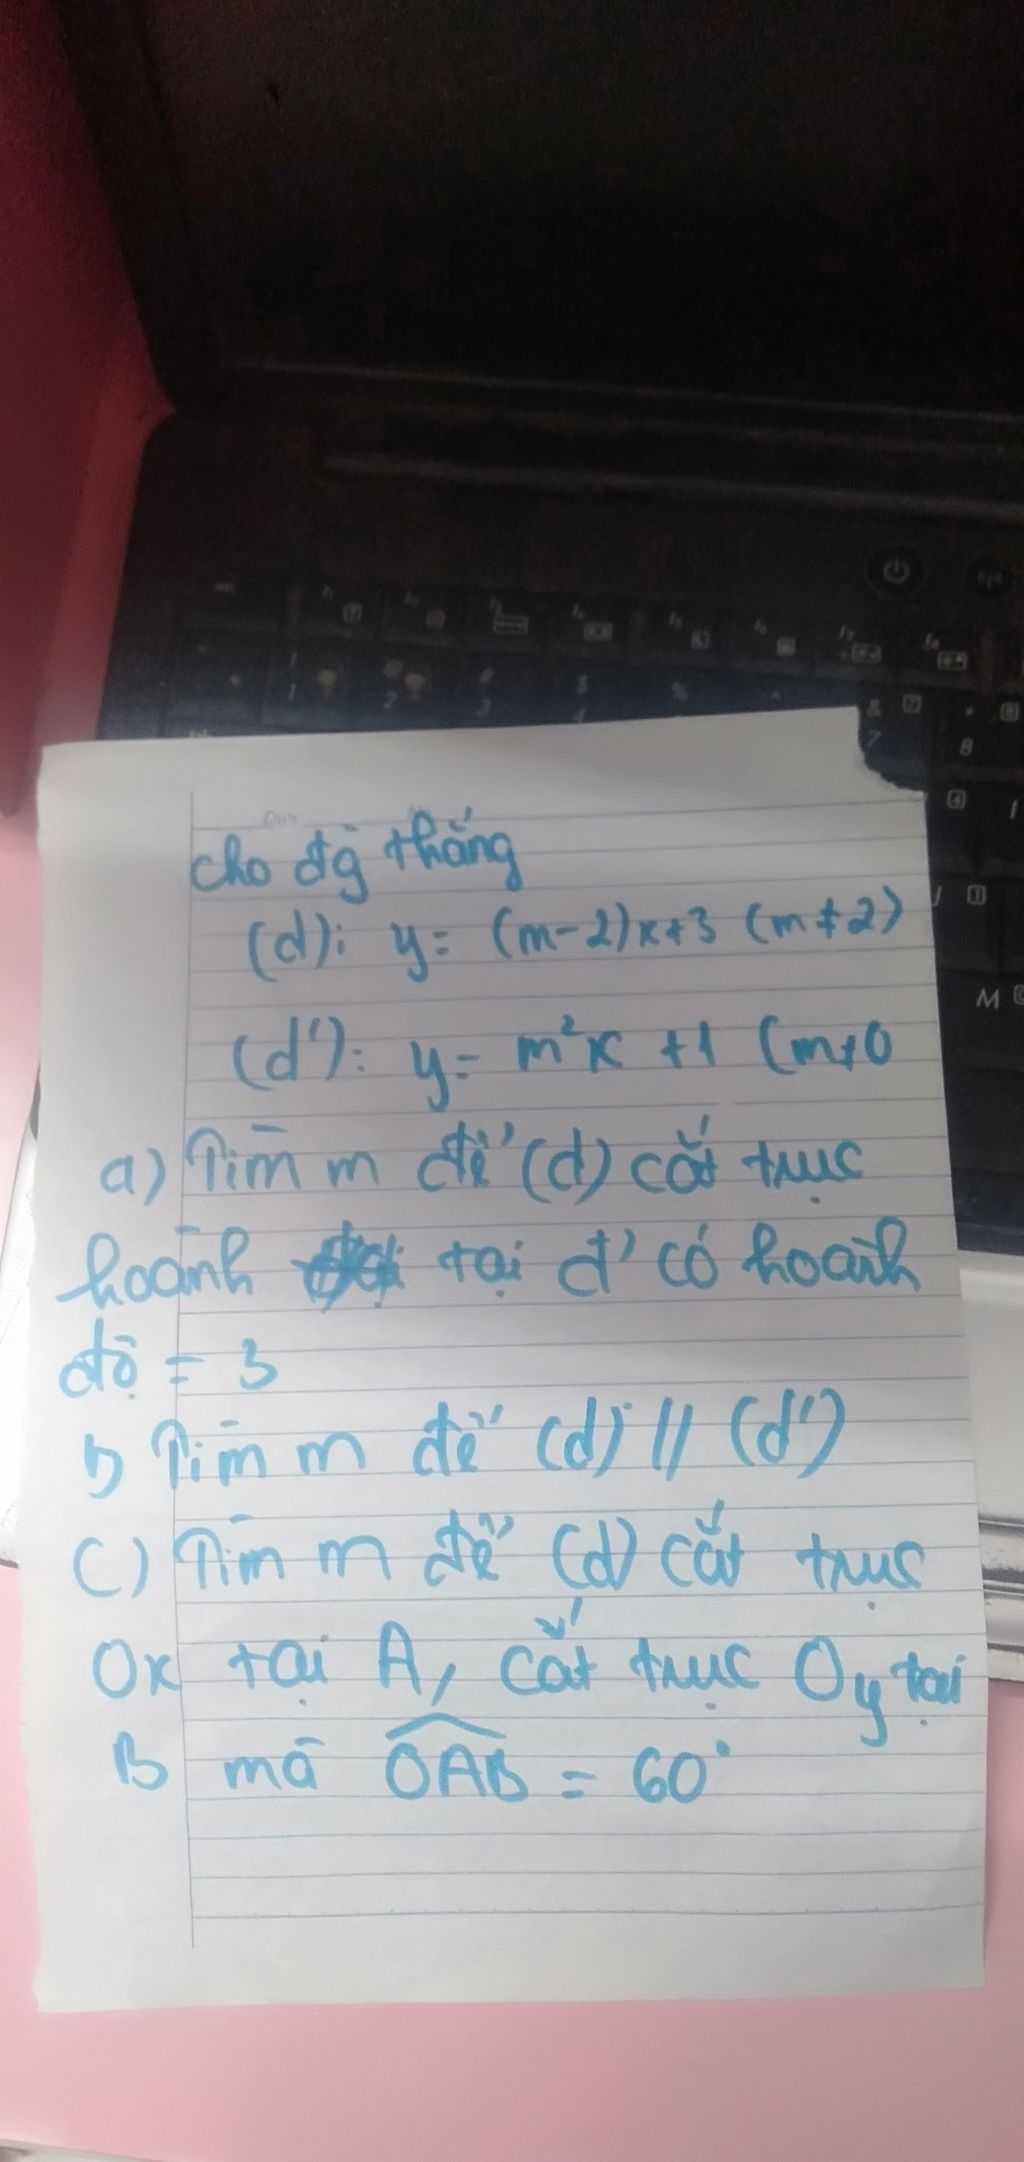 cho đg thẳng
(d): y = (m-2)x+3 (m≠2)
(d'): y = m²x +1 (m≠0
a) Tìm m để (d) cắt trục
hoành tại đ' có hoành
độ = 3
b) Tìm m để (d) // (d')
C) Tìm m để (d) cắt trục
Ox tại A, cắt trục Oy tại
B mà OAB = 60°